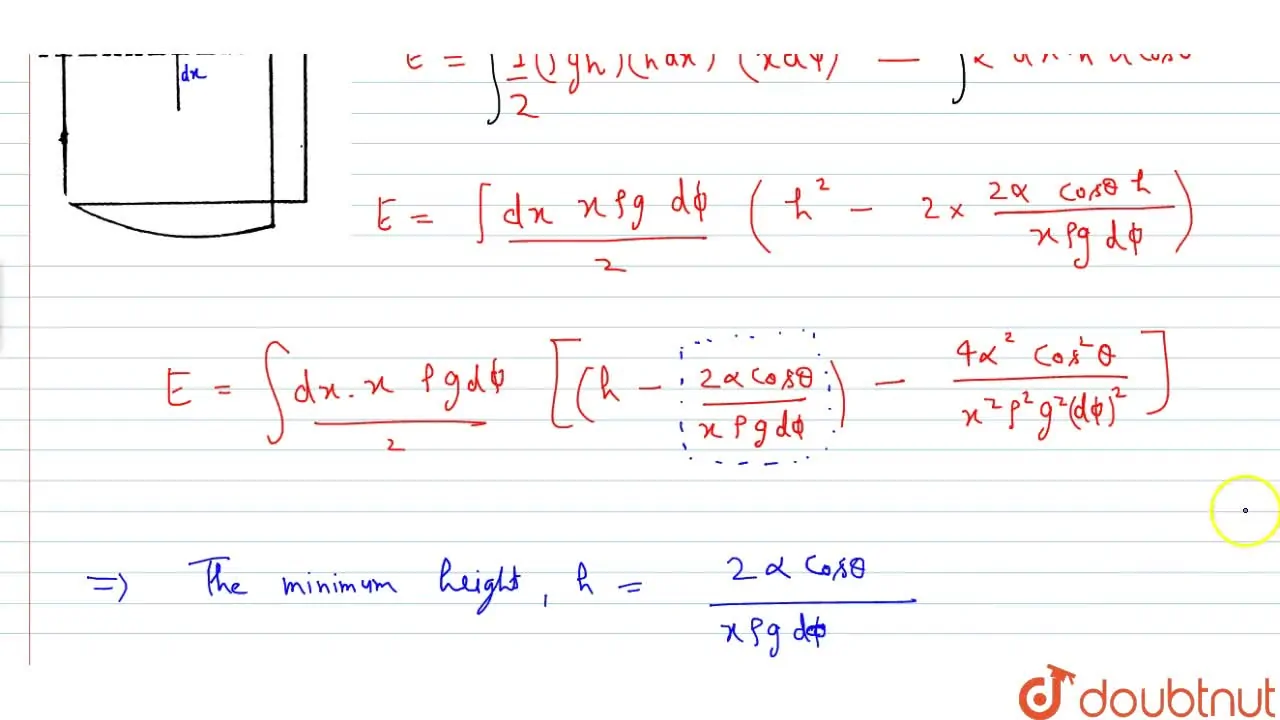 dx
E = ∫ 1/2 (ρgh)(hdx) (xdϕ) — ∫
E = ∫ dx xρg dϕ / 2 ( h² — 2 × 2α cosθ h / xρg dϕ )
E = ∫ dx. x ρgdϕ / 2 [ (h — 2α cosθ / xρgdϕ ) — 4α² cos²θ / x²ρ²g²(dϕ)² ]
⇒ The minimum height, h = 2α cosθ / xρg dϕ
doubtnut